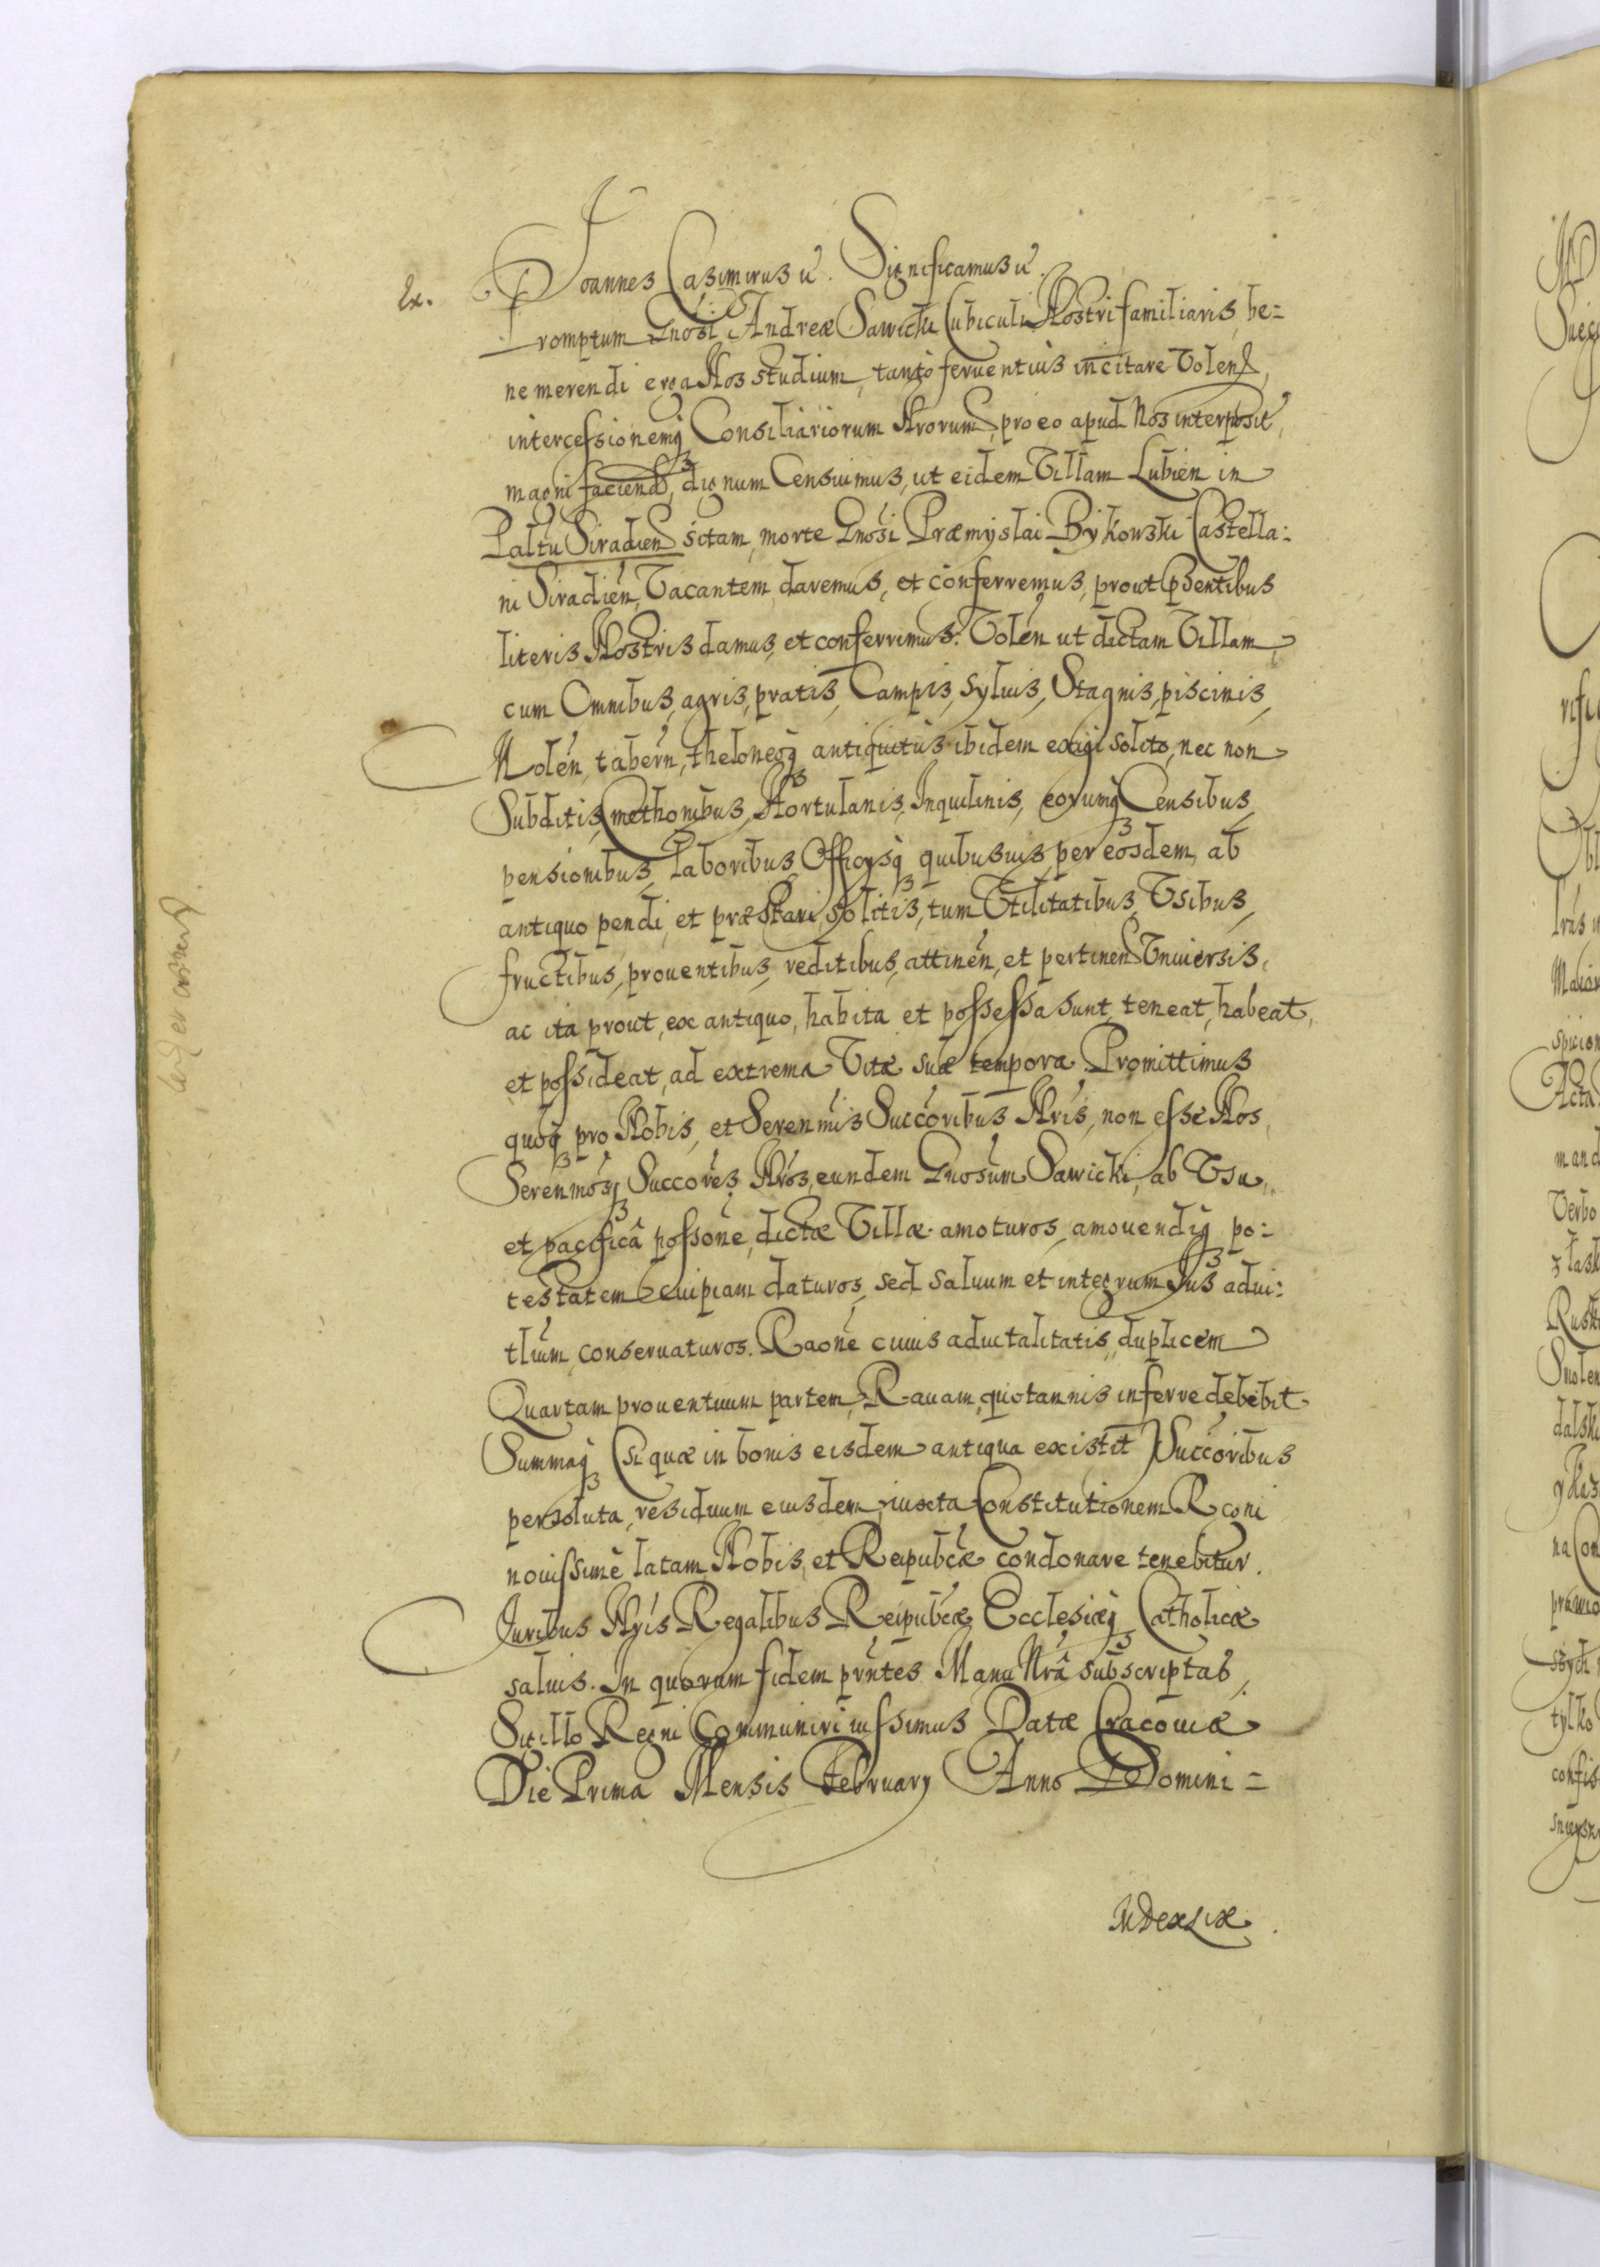 Ex.
Joannes Casimirus etc. Significamus etc.
Promptum Gnosi Andreæ Sawicki Cubiculi Nostri familiaris, be=
ne merendi erga Nos studium, tanto feruentius incitare Volen,
intercessionemq Consiliariorum Nrorum, pro eo apud Nos interposit,
magni faciend, dignum Censuimus, ut eidem Villam Lubien in
Paltu Siradien sitam, morte Gnosi Præmyslai Bykowski Castella=
ni Siradien, Vacantem, daremus, et conferremus, prout psentibus
literis Nostris damus, et conferrimus. Volen ut dictam Villam
cum Omnibus, agris, pratis, Campis, syluis, Stagnis, piscinis,
Molen, tabern, theloneoq antiquitus ibidem exigi solito, nec non
Subditis, Cmethonibus, Hortulanis, Inquilinis, eorumq Censibus,
pensionibus, laboribus, Officysq quibusuis, per eosdem, ab
antiquo pendi, et præstari solitis, tum Vtilitatibus, Vsibus,
fructibus, prouentibus, reditibus, attinen, et pertinen Vniuersis,
ac ita prout, ex antiquo, habita et possessa sunt, teneat, habeat,
et possideat, ad extrema Vitæ suæ tempora. Promittimus
quoq pro Nobis, et Serenmis Succoribus Nris, non esse Nos,
Serenmosq Succores Nros, eundem Gnosum Sawicki, ab Vsu,
et pacifica possone, dictæ Villæ amoturos, amouendiq po=
testatem cuipiam daturos, sed saluum et integrum Jus adui=
tlium, conseruaturos. Raone cuius aduitalitatis, duplicem
Quartam prouentuum partem, Rauam, quotannis inferre debebit
Summaq (si quæ in bonis eisdem antiqua existit) Succoribus
persoluta, residuum eiusdem, iuxta Constitutionem R coni
nouissime latam, Nobis, et Reipubcæ condonare tenebitur.
Juribus Nris Regalibus Reipubcæ Ecclesiæq Catholicæ
saluis. In quorum fidem prntes Manu Nra subscriptas,
Sigillo Regni Communiri iussimus Datæ Cracouiæ
Die Prima Mensis February Anno Domini=
MDCXLIX.